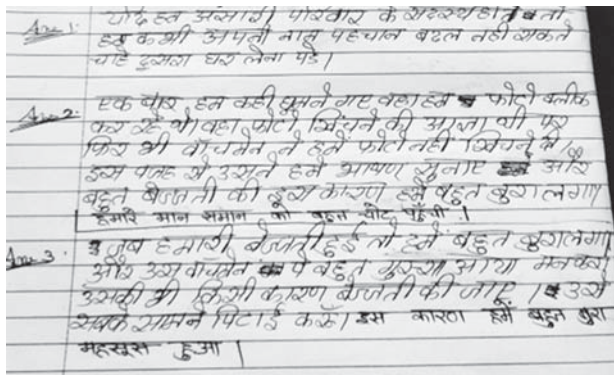 Ans 1. यदि हम अंसारी परिवार के सदस्य होते तो
हम कभी अपनी नाम पहचान बदल नही सकते
चाहे दुसरा घर लेना पडे।
Ans 2. एक बार हम कही घुमने गए वहा हम फोटो क्लीक
कर रहे थे। वहा फोटो खिंचने की आज्ञा थी पर
फिर भी वॉचमेन ने हमें फोटो नही खिंचने दी।
इस वजह से उसने हमे भाषण सुनाए और
बहुत बेज्जती की इस कारण हमें बहुत बुरा लगा।
हमारे मान समान को बहुत चोट पहुँची।
Ans 3. जब हमारी बेजती हुई तो हमें बहुत बुरा लगा
और उस वॉचमेन पे बहुत गुस्सा आया मन करा
उसकी भी किसी कारण बेजती की जाए। उसे
सबके सामने पिटाई करूँ। इस कारण हमें बहुत बुरा
महसूस हुआ।